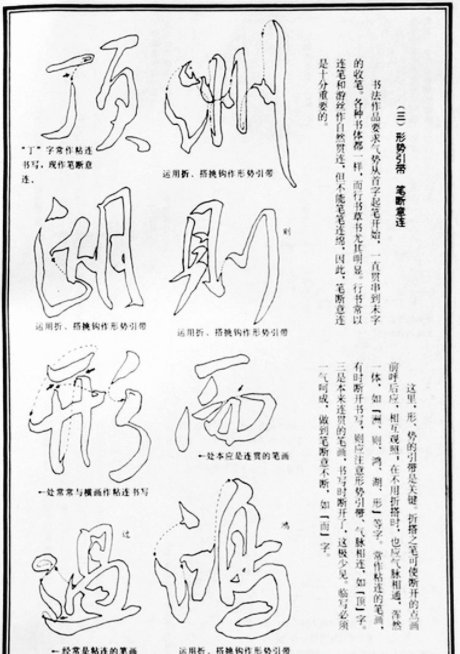 （三）形势引带　笔断意连
书法作品要求气势从首字起笔开始，一直贯串到末字
的收笔。各种书体都一样，而行书草书尤其明显。行书常以
连笔和游丝作自然贯连，但不能笔笔连绵，因此，笔断意连
是十分重要的。
这里，形、势的引带是关键。折搭之笔可使断开的点画
前呼后应，相互观照，在不用折搭时，也应气脉相通，浑然
一体，如【洲、则、鸿、湖、形】等字。常作粘连的笔画，
有时断开书写，则应注意形势引带，气脉相连，如【顶】字。
三是本来连贯的笔画，书写时断开了，这极少见。临写必须
一气呵成，做到笔断意不断，如【而】字。
洲
运用折、搭挑钩作形势引带
顶
"丁"字常作粘连
书写，现作笔断意
连。
则
则
运用折、搭挑钩作形势引带
湖
运用折、搭挑钩作形势引带
而
←处本应是连贯的笔画
形
←处常常与横画作粘连书写
鸿
鸿
运用折、搭挑钩作形势引带
過
过
←经常是粘连的笔画